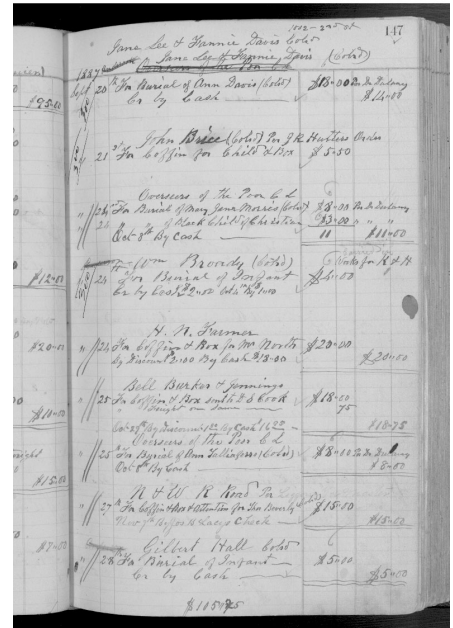 147
1002-2nd st
Jane Lee & Fannie Davis Cold
Jane Lee & Fannie Davis (Cold)
1887
Sept 20th For Burial of Ann Davis (Cold) $18-00 Per Dr
Cr by Cash $14-00
John Brice (Cold) Per J R Hunters Order
21st For Coffin for Child & Box $5-50
Overseers of the Poor C L
" 24th For Burial of Mary Jane Morris (Cold) $8-00 Per Dr
" 25 " of Black Child of Christian $3-00 " "
Oct 8th By Cash 11 $11-00
Wm Broady (Cold) Works for K & H
24 For Burial of Infant $4-00
Cr by Cash $2-00
H. N. Turner
" 24 For Coffin & Box for Mr North $20-00
By Discount $2-00 By Cash $18-00 $20-00
Bell Barker & Jennings
" 25 For Coffin & Box $18-00
" bought on same 75
Oct 29th By Discount By Cash $18-75
Overseers of the Poor C L
" 25th For Burial of Ann Talliaferro (Cold) $8-00 Per Dr
Oct 8th By Cash $8-00
N & W R Road Per
" 27th For Coffin & Box & Attention for $15-00
Nov 7th By Check $15-00
Gilbert Hall Cold
" 28th For Burial of Infant $5-00
Cr by Cash $5-00
$105
$95-00
$12-00
$20-00
$10-00
$15-00
$7-00